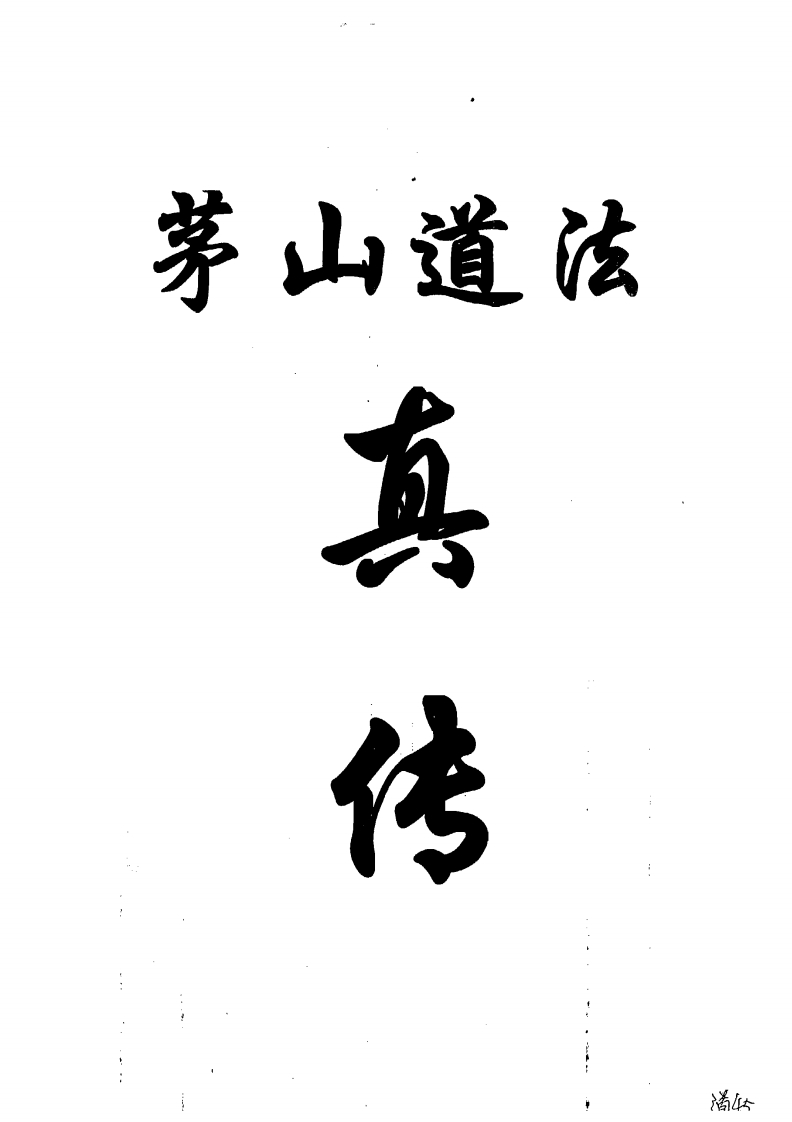 茅山道法
真
传